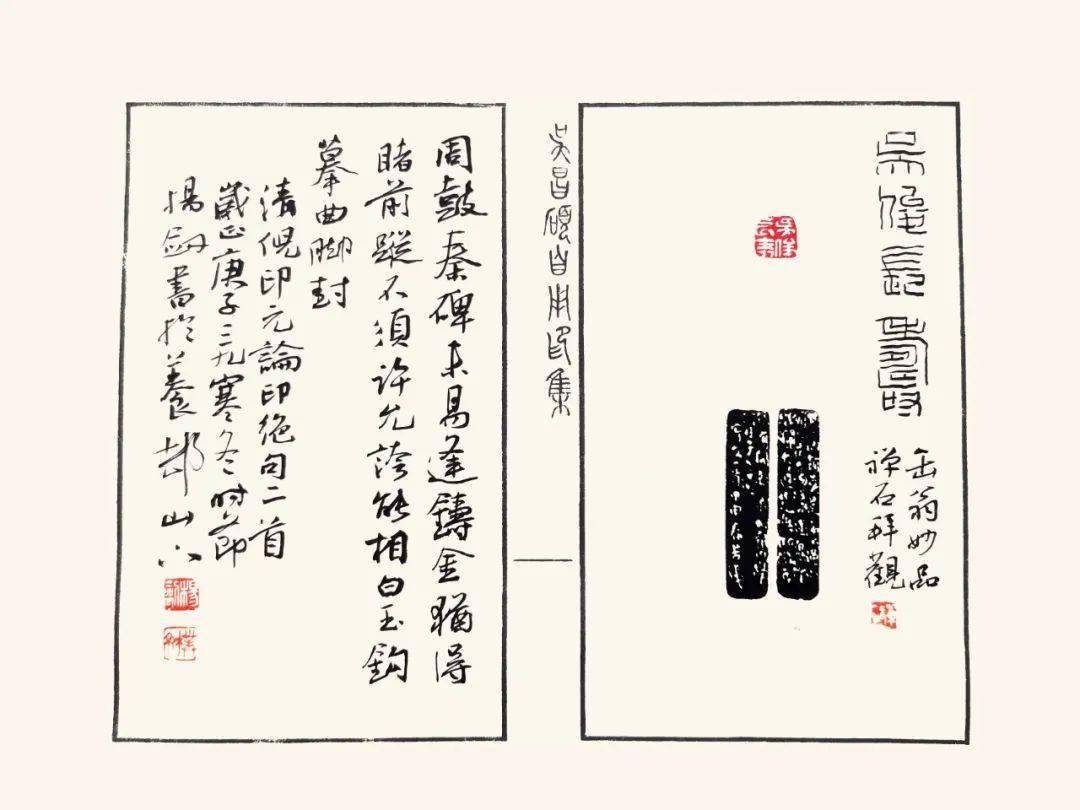 吳俊長壽
缶翁妙品
禅石拜觀
吳昌碩自用印集
周鼓秦碑未易逢鑄金猶得
睹前蹤不須許允誇能相白玉鈎
摹曲脚封
清倪印元論印絕句二首
歲庚子三九寒冬時節
楊劒書於養山